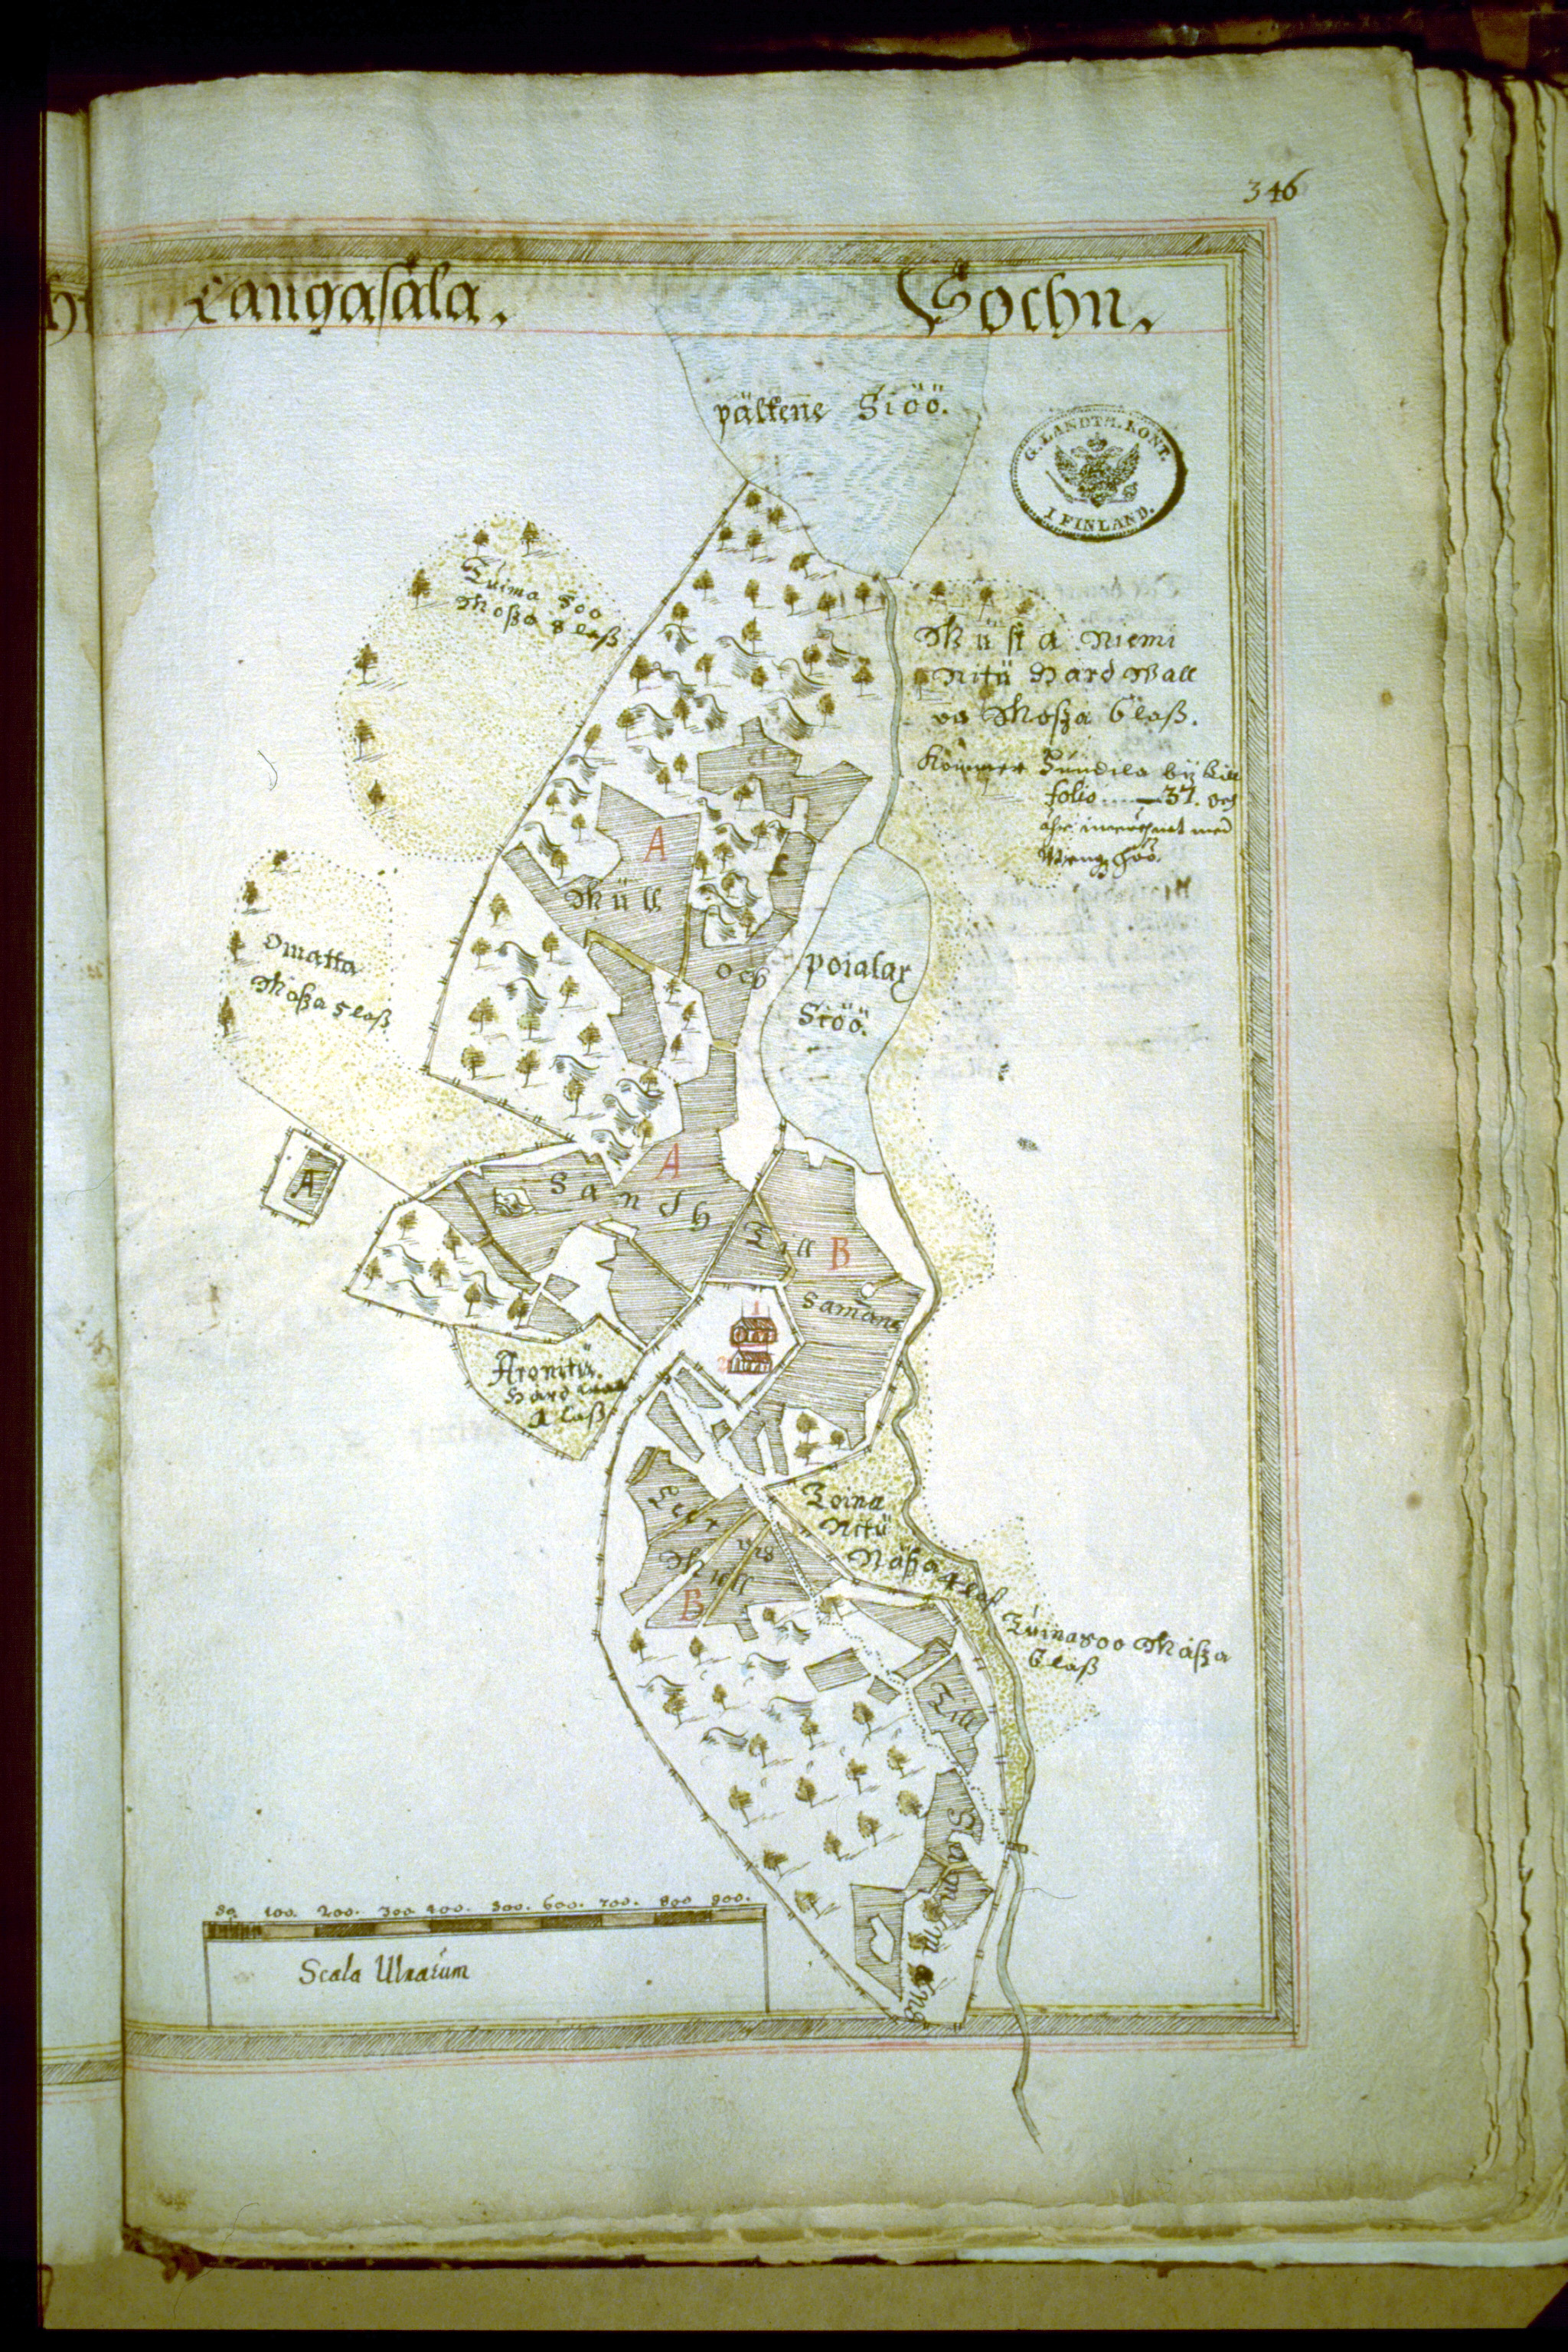 346
Cangasala. Sochn.
pälkene Siöö.
G. LANDTM. KONT.
I FINLAND.
Tuima Soo
Moßa 8 laß
Musta Niemi
Nitü Hård Wall
oo Moßa 6 laß.
Kommer Sundila bÿ till
folio 37. och
A
Müll
omatta
Moßa 5 laß
och
poialax
Siöö.
A
A
Sandh
Till
B
samans
1
2
Aronitü.
Hård wall
4 laß
Toina
Nitü
Måßa 4 laß
Leer
Müll
B
Tuimasoo Måßa
6 laß
Till
Sammans
50 100. 200. 300 400. 500. 600. 700. 800 900.
Scala Ulnarum